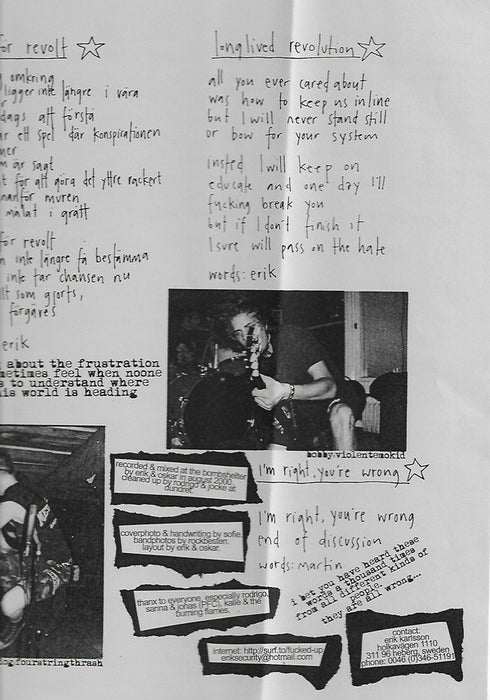 för revolt
omkring
ligger inte längre i våra
dags att förstå
ar ett spel där konspirationen
m är sagt
t för att göra det yttre vackert
nanför muren
målat i grått
för revolt
n inte längre få bestämma
inte tar chansen nu
lt som gjorts,
förgäves
erik
about the frustration
metimes feel when noone
s to understand where
is world is heading
longlived revolution
all you ever cared about
was how to keep us in line
but I will never stand still
or bow for your system
insted I will keep on
educate and one day I'll
fucking break you
but if I don't finish it
I sure will pass on the hate
words: erik
bobby.violentemokid
I'm right, you're wrong
I'm right, you're wrong
end of discussion
words: martin
i bet you have heard these
words a thousand times
from all different kinds of
people.
they are all wrong...
recorded & mixed at the bombshelter
by erik & oskar in august 2000.
cleaned up by rodrigo & jocke at
dundret.
coverphoto & handwriting by sofie.
bandphotos by rockbesten.
layout by erik & oskar.
thanx to everyone, especially rodrigo,
sanna & johas (PFC), kalle & the
burning flames.
internet: http://surf.to/fucked-up
eriksecurity@hotmail.com
contact:
erik karlsson
holkavägen 1110
311 96 heberg, sweden
phone: 0046 (0)346-51191
log.fourstringthrash